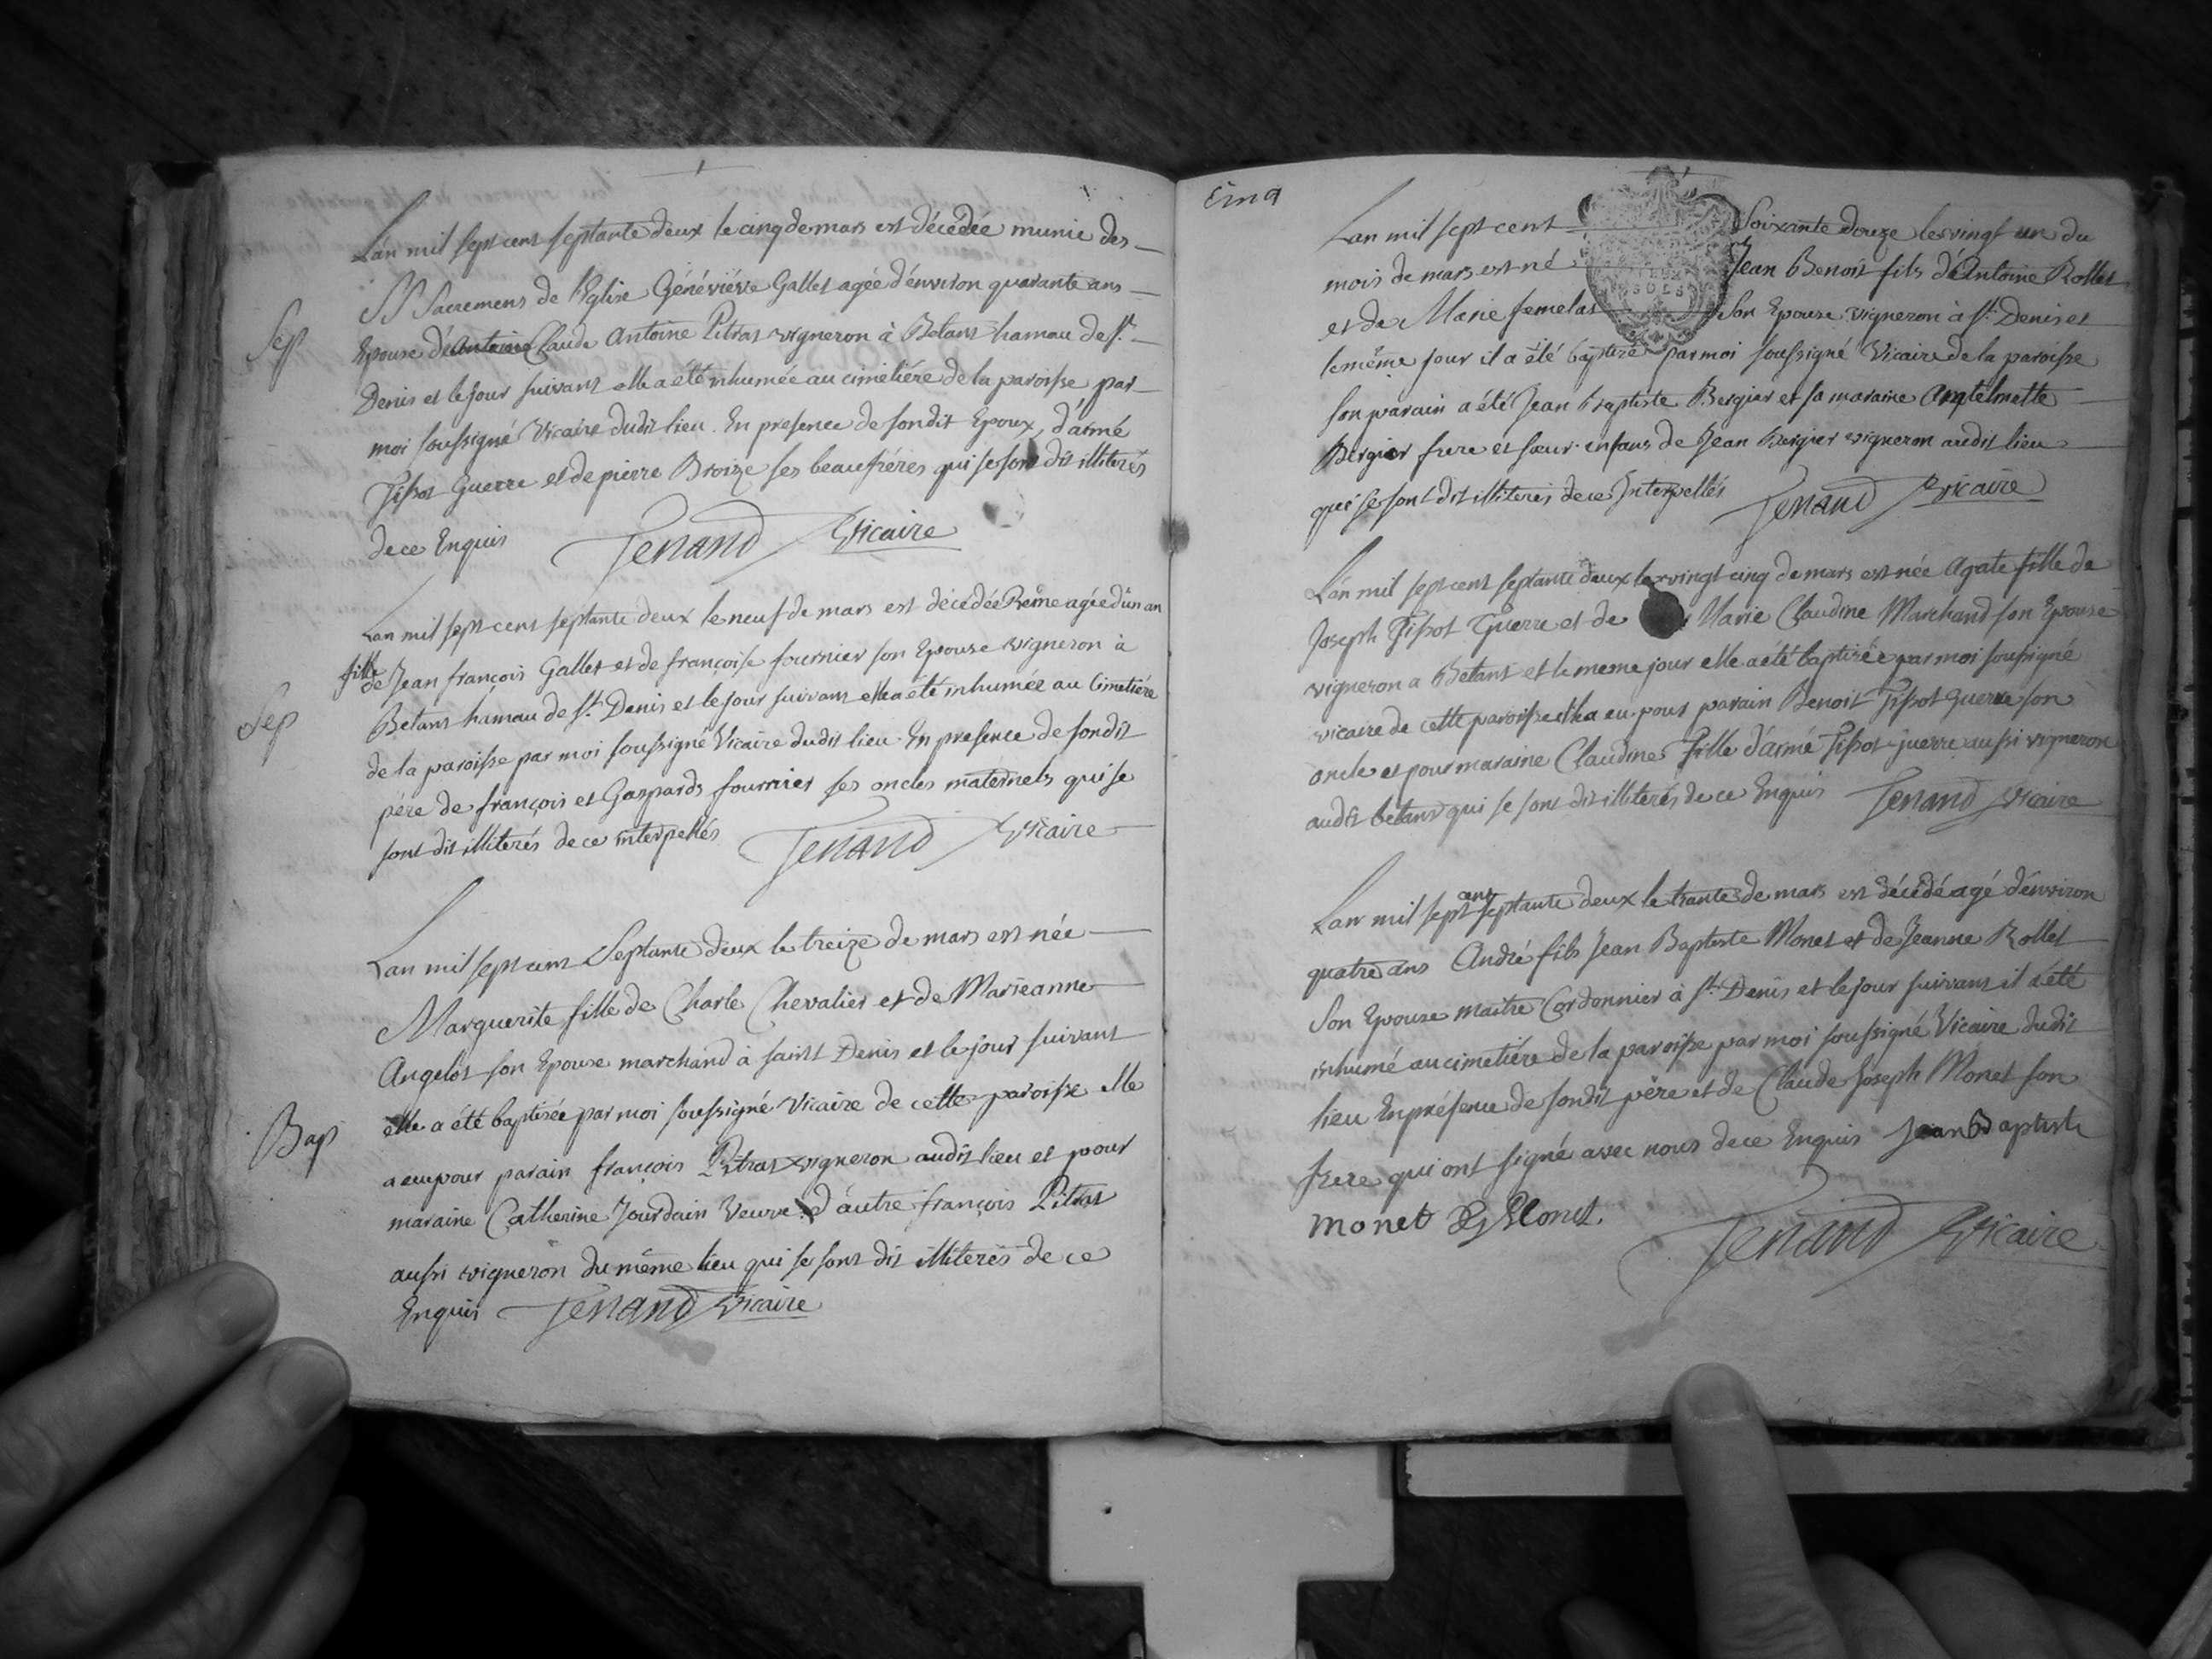 Lan mil sept cent septante deux le cinq de mars est décédée munie des
SS Sacremens de l'Eglise Généviéve Gallet agée d'énviron quarante ans
Sep
Epouse dé Antoine Claude Antoine Pitras vigneron à Betans hamau de st
Denis et le jour suivant elle a été inhumée au cimetiére de la paroisse par
moi soussigné Vicaire dudit lieu. En presence de sondit Epoux, d'aimé
Tissot Guerre et de pierre Broize ses beaufréres qui se sont dit illiterés
de ce Enquis Tenand Vicaire
Lan mil sept cent septante deux le neuf de mars est décédée Reine agée d'un an
fille
de Jean françois Gallet et de françoise fournier son Epouse vigneron à
Betans hamau de st Denis et le jour suivant elle a été inhumée au Cimetiére
Sep
de la paroisse par moi soussigné Vicaire dudit lieu En presence de sondit
pére de françois et Gaspards fournier ses oncles maternels qui se
sont dit illiterés de ce interpellés Tenand Vicaire
Lan mil sept cent Septante deux le treize de mars est née
Marguerite fille de Charle Chevalier et de Marieanne
Angelot son Epouse marchand à saint Denis et le jour suivant
elle a été baptisée par moi soussigné Vicaire de cette paroisse elle
Bap
a eu pour parain françois Pitras vigneron audit lieu et pour
maraine Catherine Jourdain Veuve d'autre françois Pitras
aussi vigneron du même lieu qui se sont dit illiterés de ce
Enquis Tenand Vicaire
Cinq
Lan mil sept cent Soixante douze le vingt un du
mois de mars est né Jean Benoit fils dé Antoine Rollet
et de Marie femelas Son Epouse vigneron à st Denis et
le même jour il a été baptisé par moi soussigné Vicaire de la paroisse
son parain a été Jean baptiste Bergier et sa maraine Antelmette
Bergier frere et sœur enfans de Jean bergier vigneron audit lieu
qui se sont dit illiterés de ce Interpellés Tenand Vicaire
Lán mil sept cent septante deux le vingt cinq de mars est née Agate fille de
Joseph Tissot Guerre et de Marie Claudine Marchand son Epouse
vigneron a Betans et le meme jour elle a été baptisée par moi soussigné
vicaire de cette paroisse elle a eu pour parain Benoit Tissot guerre son
oncle et pour maraine Claudine Fille d'aimé Tissot guerre aussi vigneron
audit betans qui se sont dit illiterés de ce Enquis Tenand Vicaire
cent
Lan mil sept septante deux le trante de mars est décédé agé d'énviron
quatre ans André fils Jean Baptiste Monet et de Jeanne Rollet
Son Epouse maitre Cordonnier à st Denis et le jour suivant il a été
inhumé au cimetiére de la paroisse par moi soussigné Vicaire dudit
lieu En présence de sondit pére et de Claude Joseph Monet son
frere qui ont signé avec nous de ce Enquis Jean Baptiste
monet Monet.
Tenand Vicaire